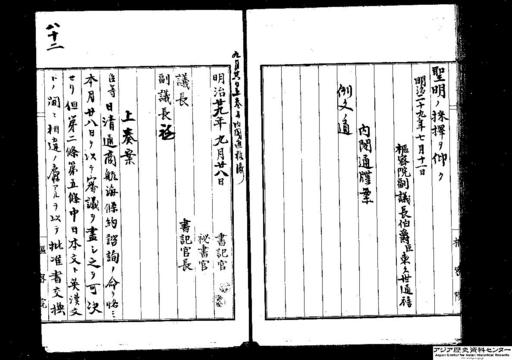 聖明ノ採択ヲ仰ク
明治二十九年
枢密院副議長伯爵臣東久世通禧
内閣通牒案
例文ノ通
八十二
明治廿九年九月廿八日
書記官
秘書官
議長
書記官長
副議長
上奏案
臣等日清通商航海條約諮詢ノ命ヲ恪ミ
本月廿八日ヲ以テ審議ヲ盡シ之ヲ可決
セリ但第二條第五條中日本文ト英漢文
トノ間ニ相違ノ廉アルヲ以テ批准書交換
枢密院
アジア歴史資料センター
Japan Center for Asian Historical Records